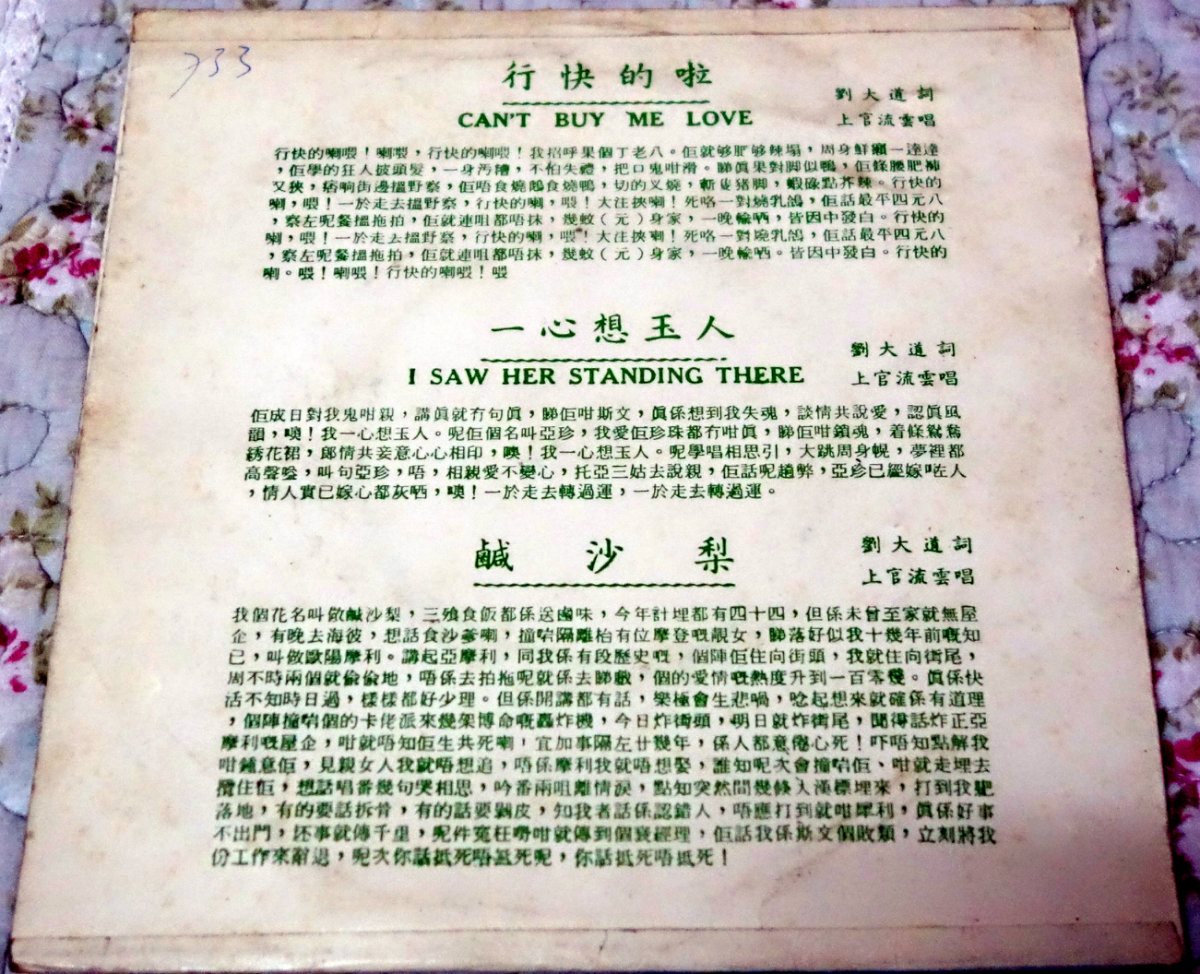 733
行快的啦
劉大道詞
CAN'T BUY ME LOVE
上官流雲唱
行快的喇喂！喇喂，行快的喇喂！我招呼果個丁老八。佢就够肥够辣塌，周身鮮癩一達達
，佢學的狂人披頭髮，一身汚糟，不怕失禮，把口鬼咁滑。睇眞果對脚似鴨，佢條腰肥
又挾，痞响街邊搵野察，佢唔食燒鵝食燒鴨，切的义燒，斬隻猪脚，蝦碌點芥辣。行快的
喇，喂！一於走去搵野察，行快的喇，喂！大注挾喇！死咯一對燒乳鴿，佢話最平四元八
，察左呢餐搵拖拍，佢就連咀都唔抹，幾蚊（元）身家，一晚輸哂，皆因中發白。行快的
喇，喂！一於走去搵野察，行快的喇，喂！大注挾喇！死咯一對燒乳鴿，佢話最平四元八
，察左呢餐搵拖拍，佢就連咀都唔抹，幾蚊（元）身家，一晚輸哂。皆因中發白。行快的
喇。喂！喇喂！行快的喇喂！喂
一心想玉人
劉大道詞
I SAW HER STANDING THERE
上官流雲唱
佢成日對我鬼咁親，講眞就冇句眞，睇佢咁斯文，眞係想到我失魂，談情共說愛，認眞風
韻，噢！我一心想玉人。呢佢個名叫亞珍，我愛佢珍珠都冇咁眞，睇佢咁鎖魂，着條鴛鴦
綉花裙，郎情共妾意心心相印，噢！我一心想玉人。呢學唱相思引，大跳周身幌，夢裡都
高聲嗌，叫句亞珍，唔，相親愛不變心，托亞三姑去說親，佢話呢趟弊，亞珍已經嫁咗人
，情人實已嫁心都灰哂，噢！一於走去轉過運，一於走去轉過運。
鹹沙梨
劉大道詞
上官流雲唱
我個花名叫做鹹沙梨，三飧食飯都係送鹵味，今年計埋都有四十四，但係未曾至家就無屋
企，有晚去海彼，想話食沙爹喇，撞啱隔離枱有位摩登嘅靚女，睇落好似我十幾年前嘅知
已，叫做歐陽摩利。講起亞摩利，同我係有段歷史嘅，個陣佢住向街頭，我就住向街尾，
周不時兩個就偷偷地，唔係去拍拖呢就係去睇戲，個的愛情嘅熱度升到一百零幾。眞係快
活不知時日過，樣樣都好少理。但係開講都有話，樂極會生悲喎，唸起想來就確係有道理
，個陣撞啱個的卡佬派來幾架博命嘅轟炸機，今日炸街頭，明日就炸街尾，聞得話炸正亞
摩利嘅屋企，咁就唔知佢生共死喇，宜加事隔左廿幾年，係人都意倦心死！吓唔知點解我
咁鍾意佢，見親女人我就唔想追，唔係摩利我就唔想娶，誰知呢次會撞啱佢、咁就走埋去
攬住佢，想話唱番幾句哭相思，吟番兩咀離情淚，點知突然間幾條大漢標埋來，打到我跐
落地，有的要話拆骨，有的話要剝皮，知我者話係認錯人，唔應打到就咁犀利，眞係好事
不出門，坏事就傳千里，呢件寃枉嘢咁就傳到個衰經理，佢話我係斯文個敗類，立刻將我
份工作來辭退，呢次你話抵死唔抵死呢，你話抵死唔抵死！